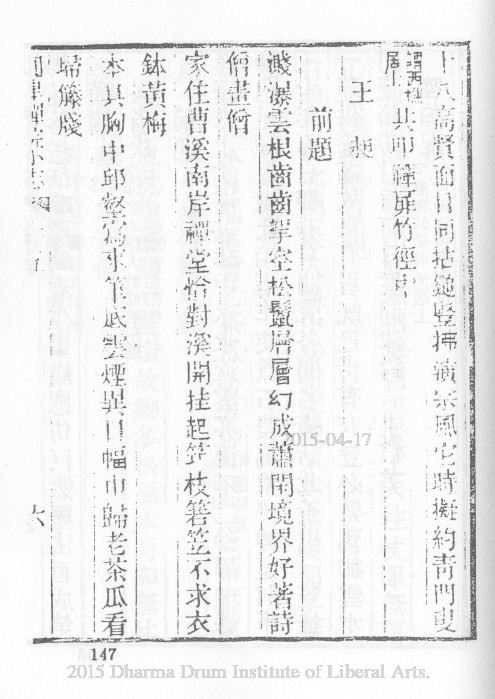 十八高賢面目同拈鎚豎拂演宗風它時擬約青門叟
謂西樵居士共叩禪扉竹徑中
王昶
前題
濺瀑雲根齒齒架空松鬣層層幻成蕭閒境界好著詩
僧畫僧
家住曹溪南岸禪堂恰對溪開拄起筇枝箬笠不求衣
鉢黃梅
本具胸中邱壑為求筆底雲煙異日幅巾歸老茶瓜看
埽籐牋
六
147
2015-04-17
2015 Dharma Drum Institute of Liberal Arts.